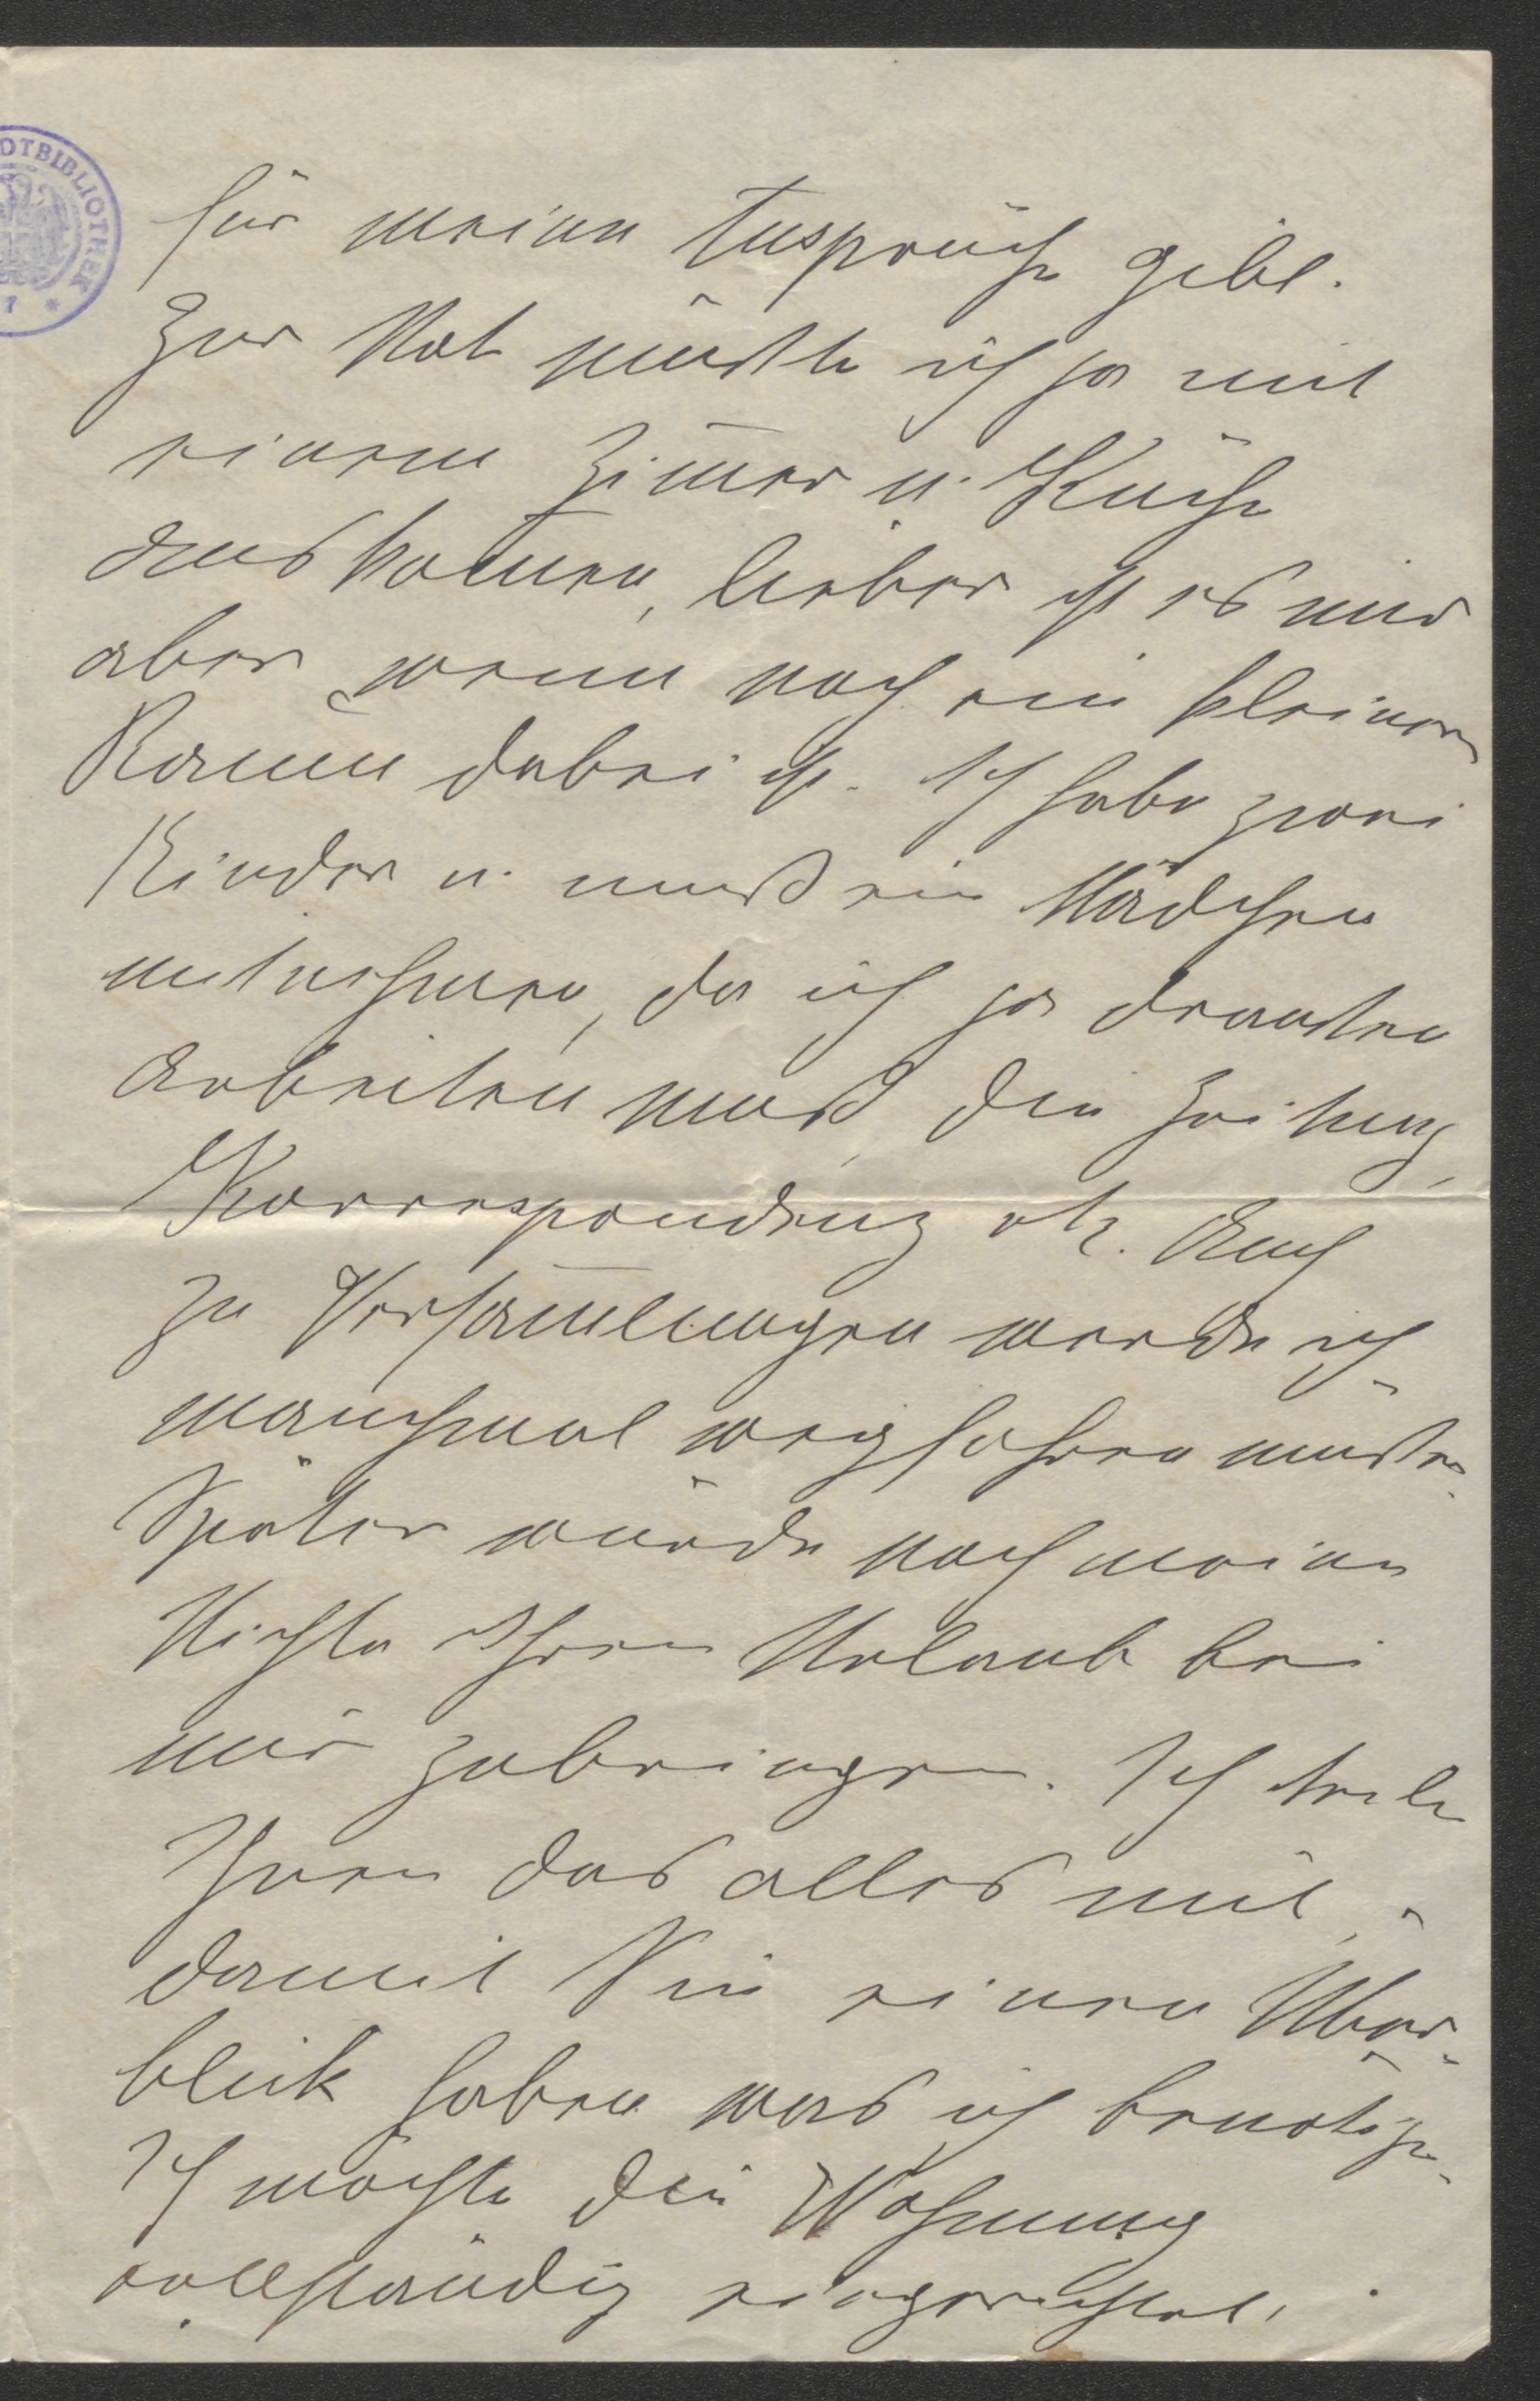 DTBIBLIOTHEK
für meine Ansprüche gibt.
Zur Not müßte ich ja mit
einem Zim̅er u. Küche
auskom̅en, lieber ist es mir
aber wenn noch ein kleiner
Raum dabei ist. Ich habe zwei
Kinder u. muß ein Mädchen
mitnehmen, da ich ja draußen
arbeiten muß, die Zeitung,
Korrespondenz etz. Auch
zu Versam̅lungen werde ich
manchmal wegfahren müßen.
Später würde noch meine
Nichte Ihren Urlaub bei
mir zubringen. Ich teile
Ihnen das alles mit,
damit Sie einen Über-
blick haben was ich benötige.
Ich möchte die Wohnung
vollständig eingerichtet,